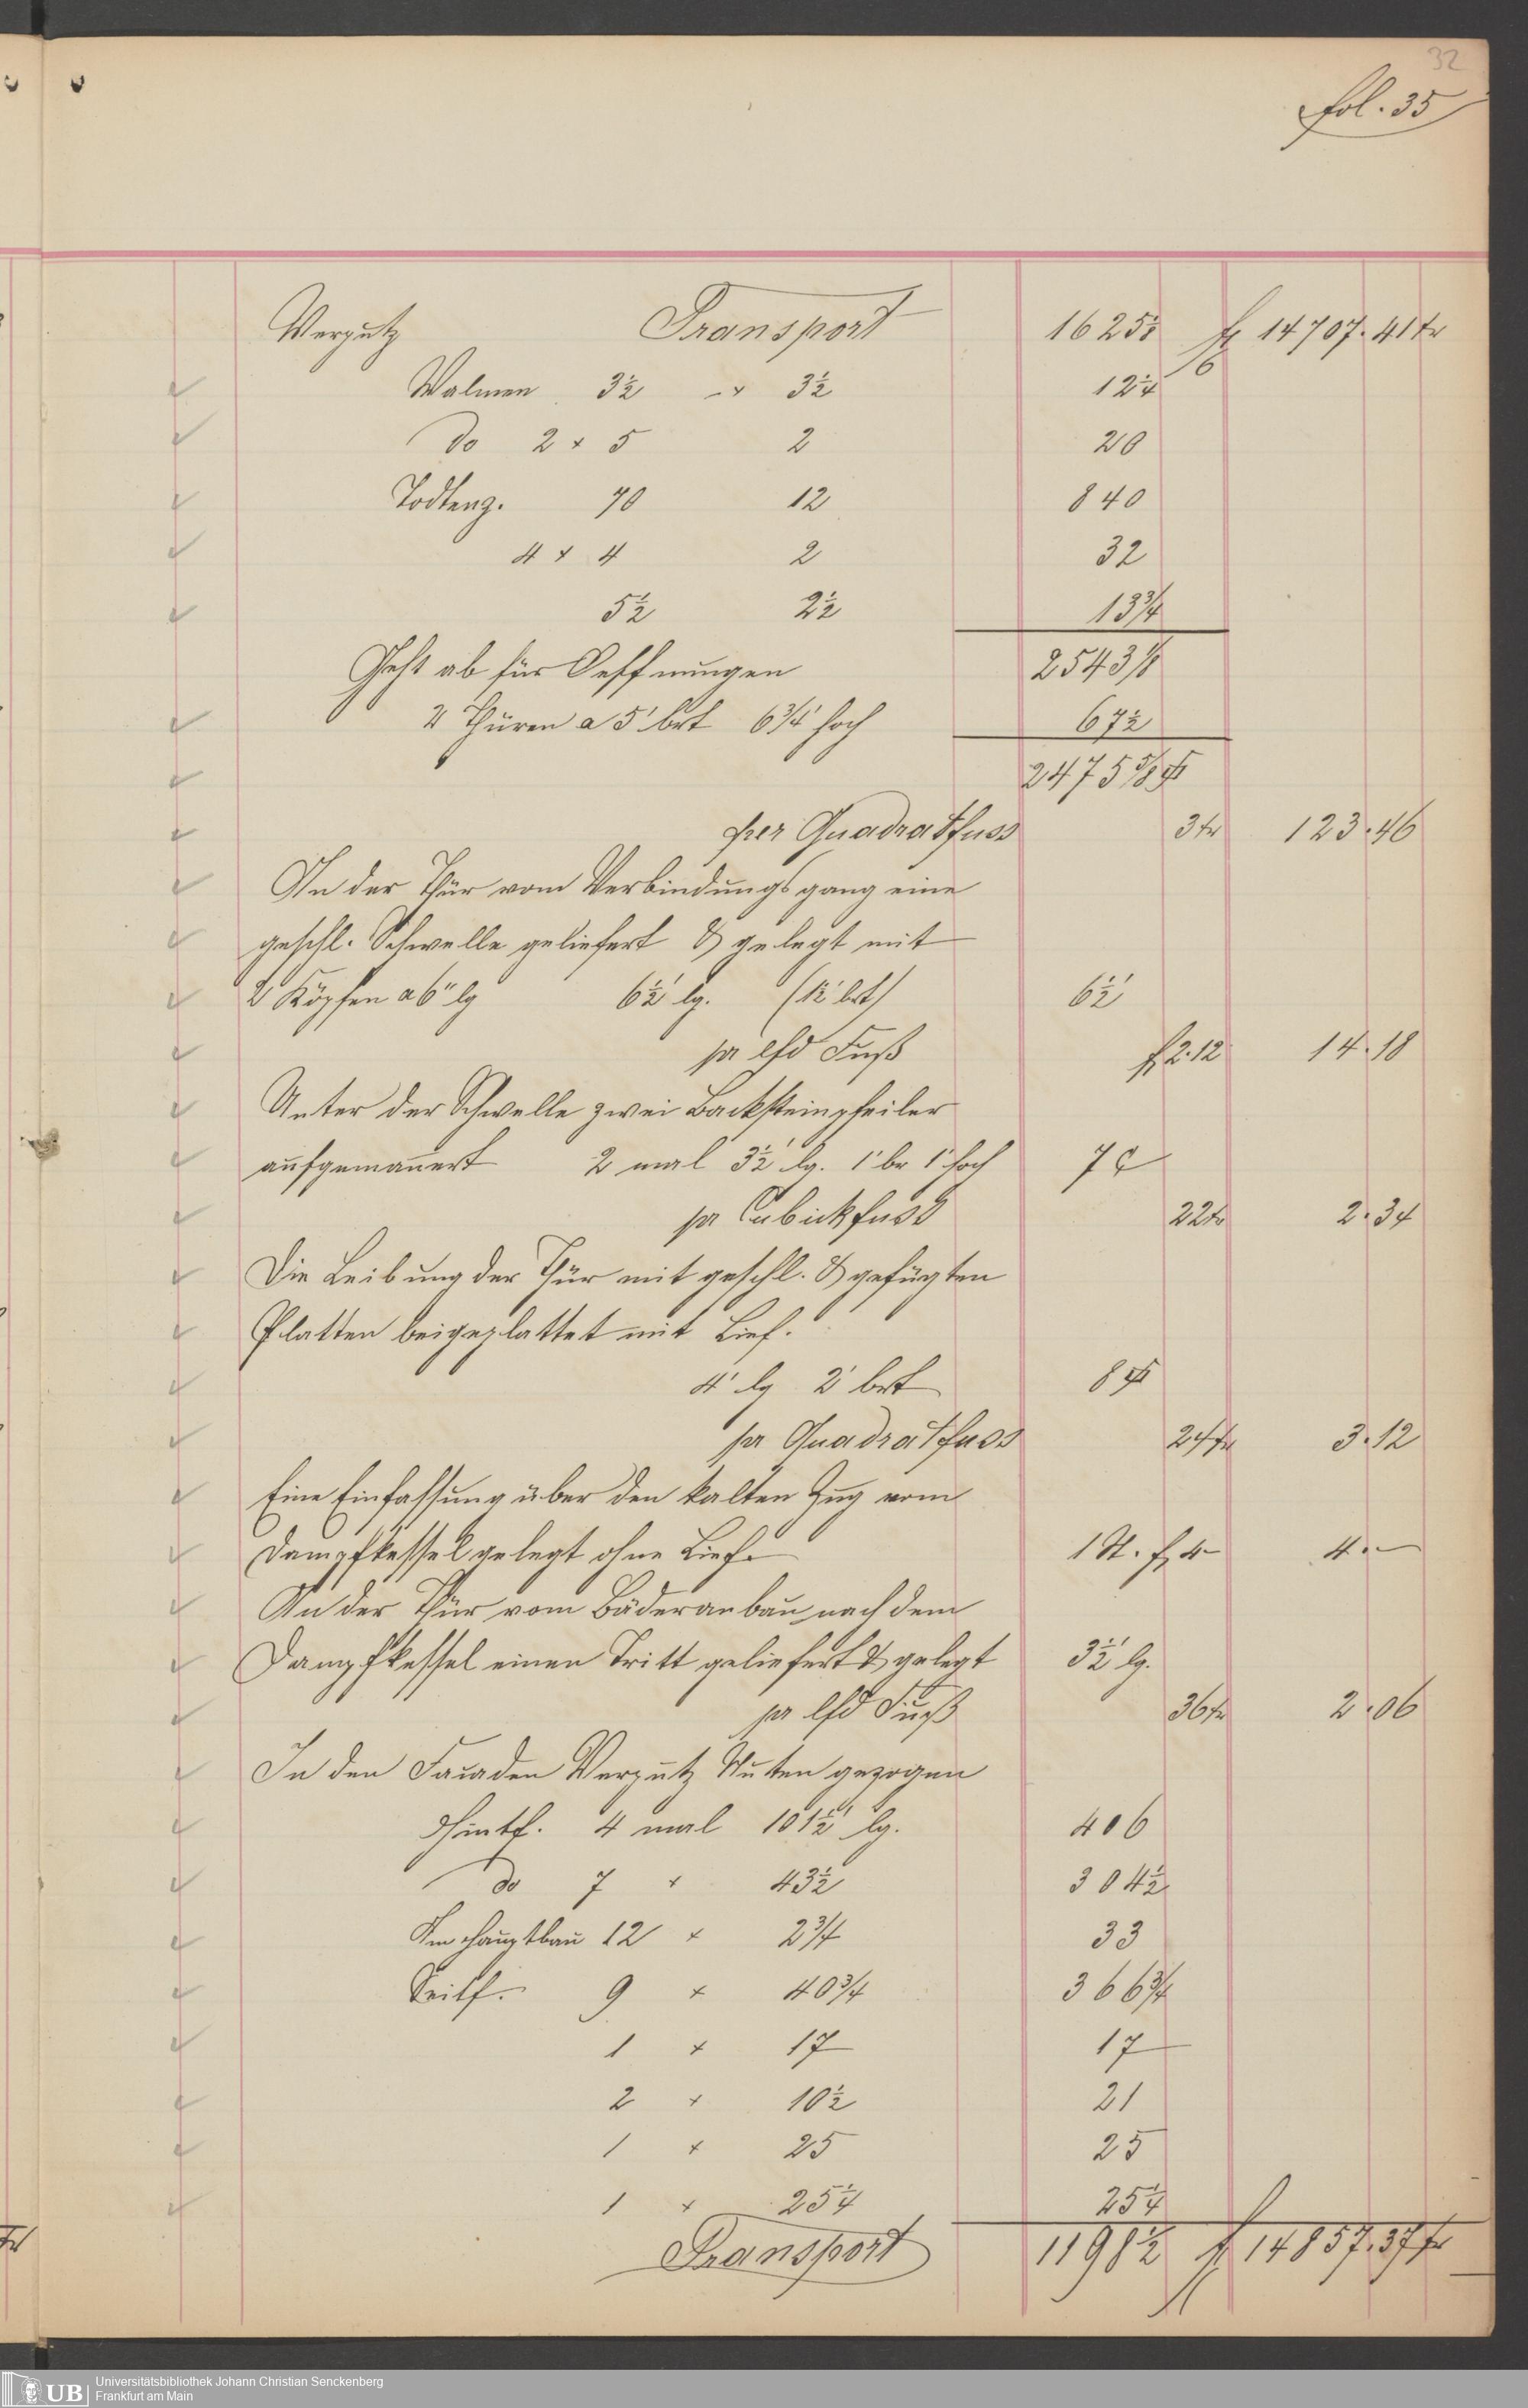 32
fol. 35
Verputz Transport 1625⅛ fl 14707. 41 kr
Walmen 3½ " 3½ 12¼
do 2 × 5 2 20
Todtenz. 70 12 840
4 × 4 2 32
5½ 2½ 13¾
Geht ab für Oeffnungen 2543⅛
2 Thüren a 5' brt 6¾' hoch 67½
2475⅝
per Quadratfuss 3 kr 123. 46
In der Thür vom Verbindungsgang eine
geschl. Schwelle geliefert & gelegt mit
2 Köpfen a 6" lg 6½' lg. (12" brt) 6½'
pr lfd Fuß fl 2.12 14. 18
Unter der Schwelle zwei Backsteinpfeiler
aufgemauert 2 mal 3½' lg. 1' br 1' hoch 7 c
pr Cubickfuss 22 kr 2. 34
Die Leibung der Thür mit geschl. & gefügten
Platten beigeplattet mit Lief.
4' lg 2' brt 8
pr Quadratfuss 24 kr 3. 12
Eine Einfassung über den kalten Zug vom
Dampfkessel gelegt ohne Lief. 1 St. fl 4 – 4. –
An der Thür vom Bäderanbau nach dem
Dampfkessel einen Tritt geliefert & gelegt 3½' lg.
pr lfd Fuß 36 kr 2. 06
In den Facaden Verputz Nuten gezogen
Hintf. 4 mal 101½' lg. 406
do 7 " 43½ 304½
Am Hauptbau 12 " 2¾ 33
Seitf. 9 " 40¾ 366¾
1 " 17 17
2 " 10½ 21
1 " 25 25
1 " 25¼ 25¼
Transport 1198½ fl 14857. 37 kr
UB Universitätsbibliothek Johann Christian Senckenberg
Frankfurt am Main